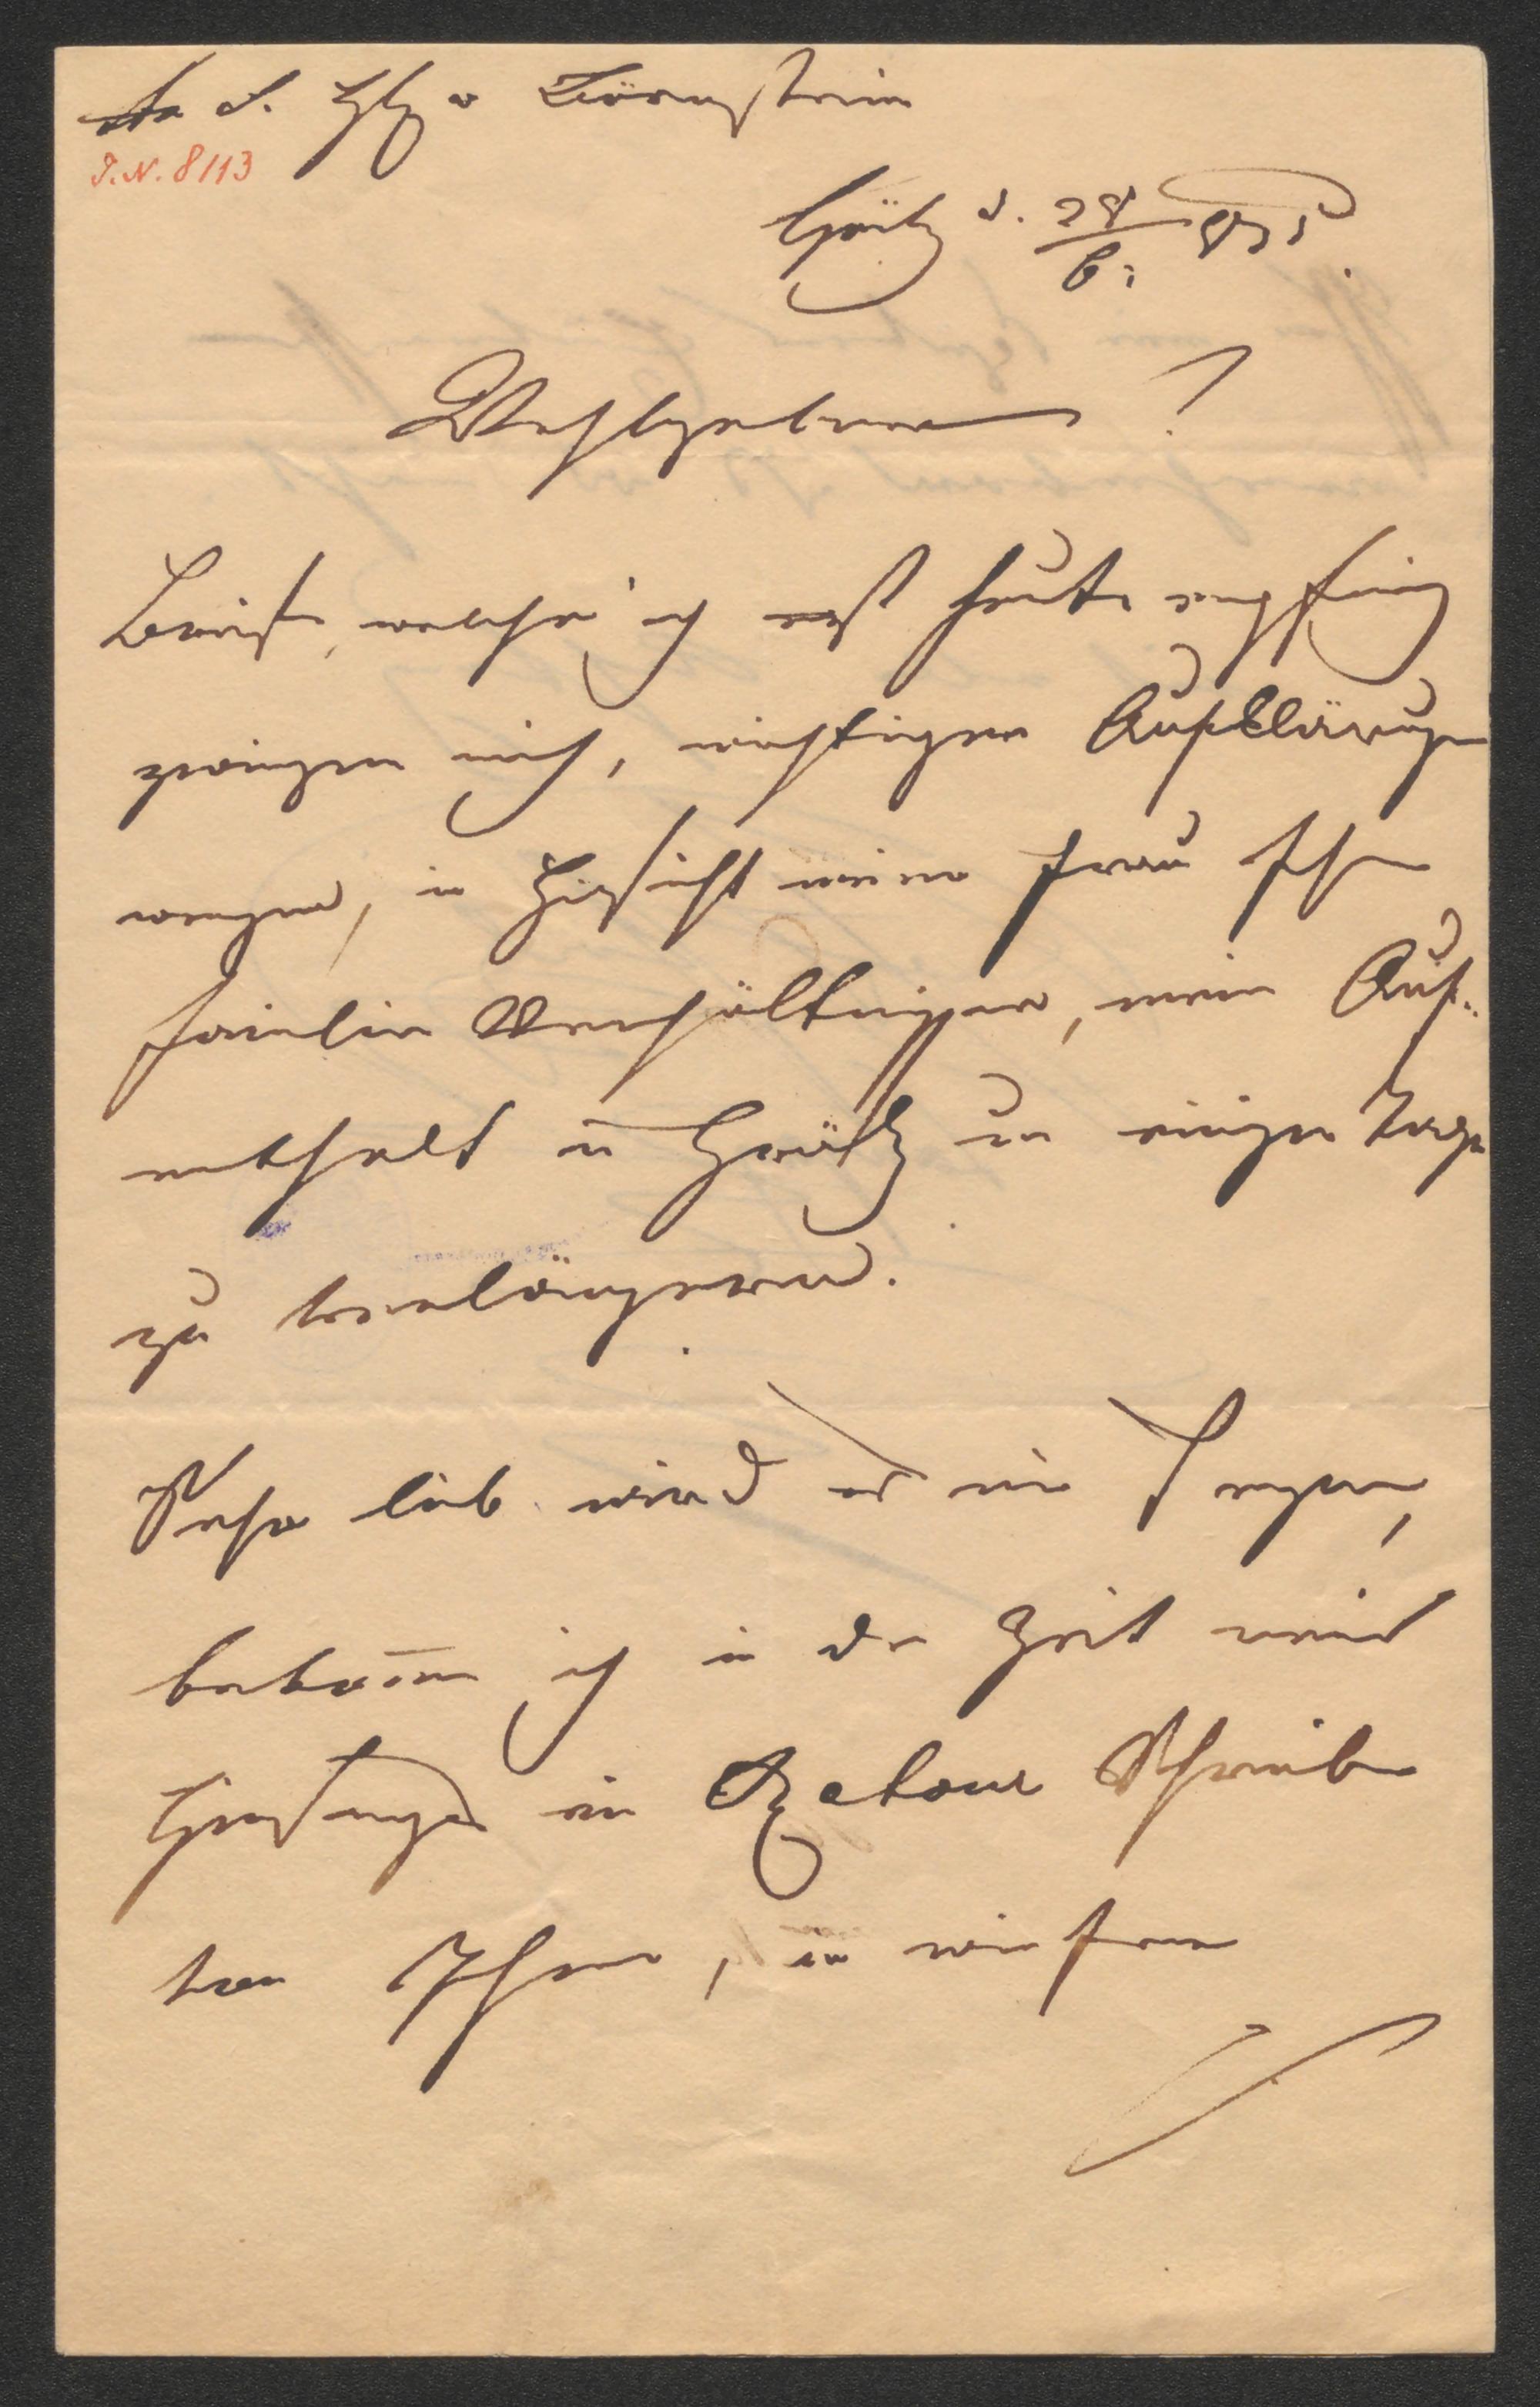 An S. H. v Börnstein
I.N. 8113
Grätz d. 28/6. 875.
Wohlgeboren!
Briefe, welche ich erst heute empfing
zwingen mich, wichtigen Aufklärungen
wegen, in Hinsicht meiner Frau
Familien Verhältnissen, mein Auf-
enthalt in Grätz um einige Tage
zu verlängern.
Sehr lieb wird es mir seyn,
bekomm ich in der Zeit meines
Hierseyns ein Retour Schreiben
von Ihnen, in wiefern